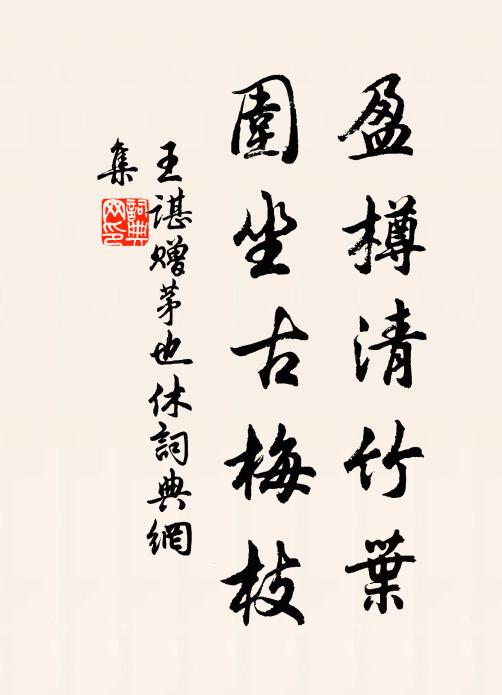 盈樽清竹葉
圍坐古梅枝
王諶贈茅也休詞典網
集
詞典網印